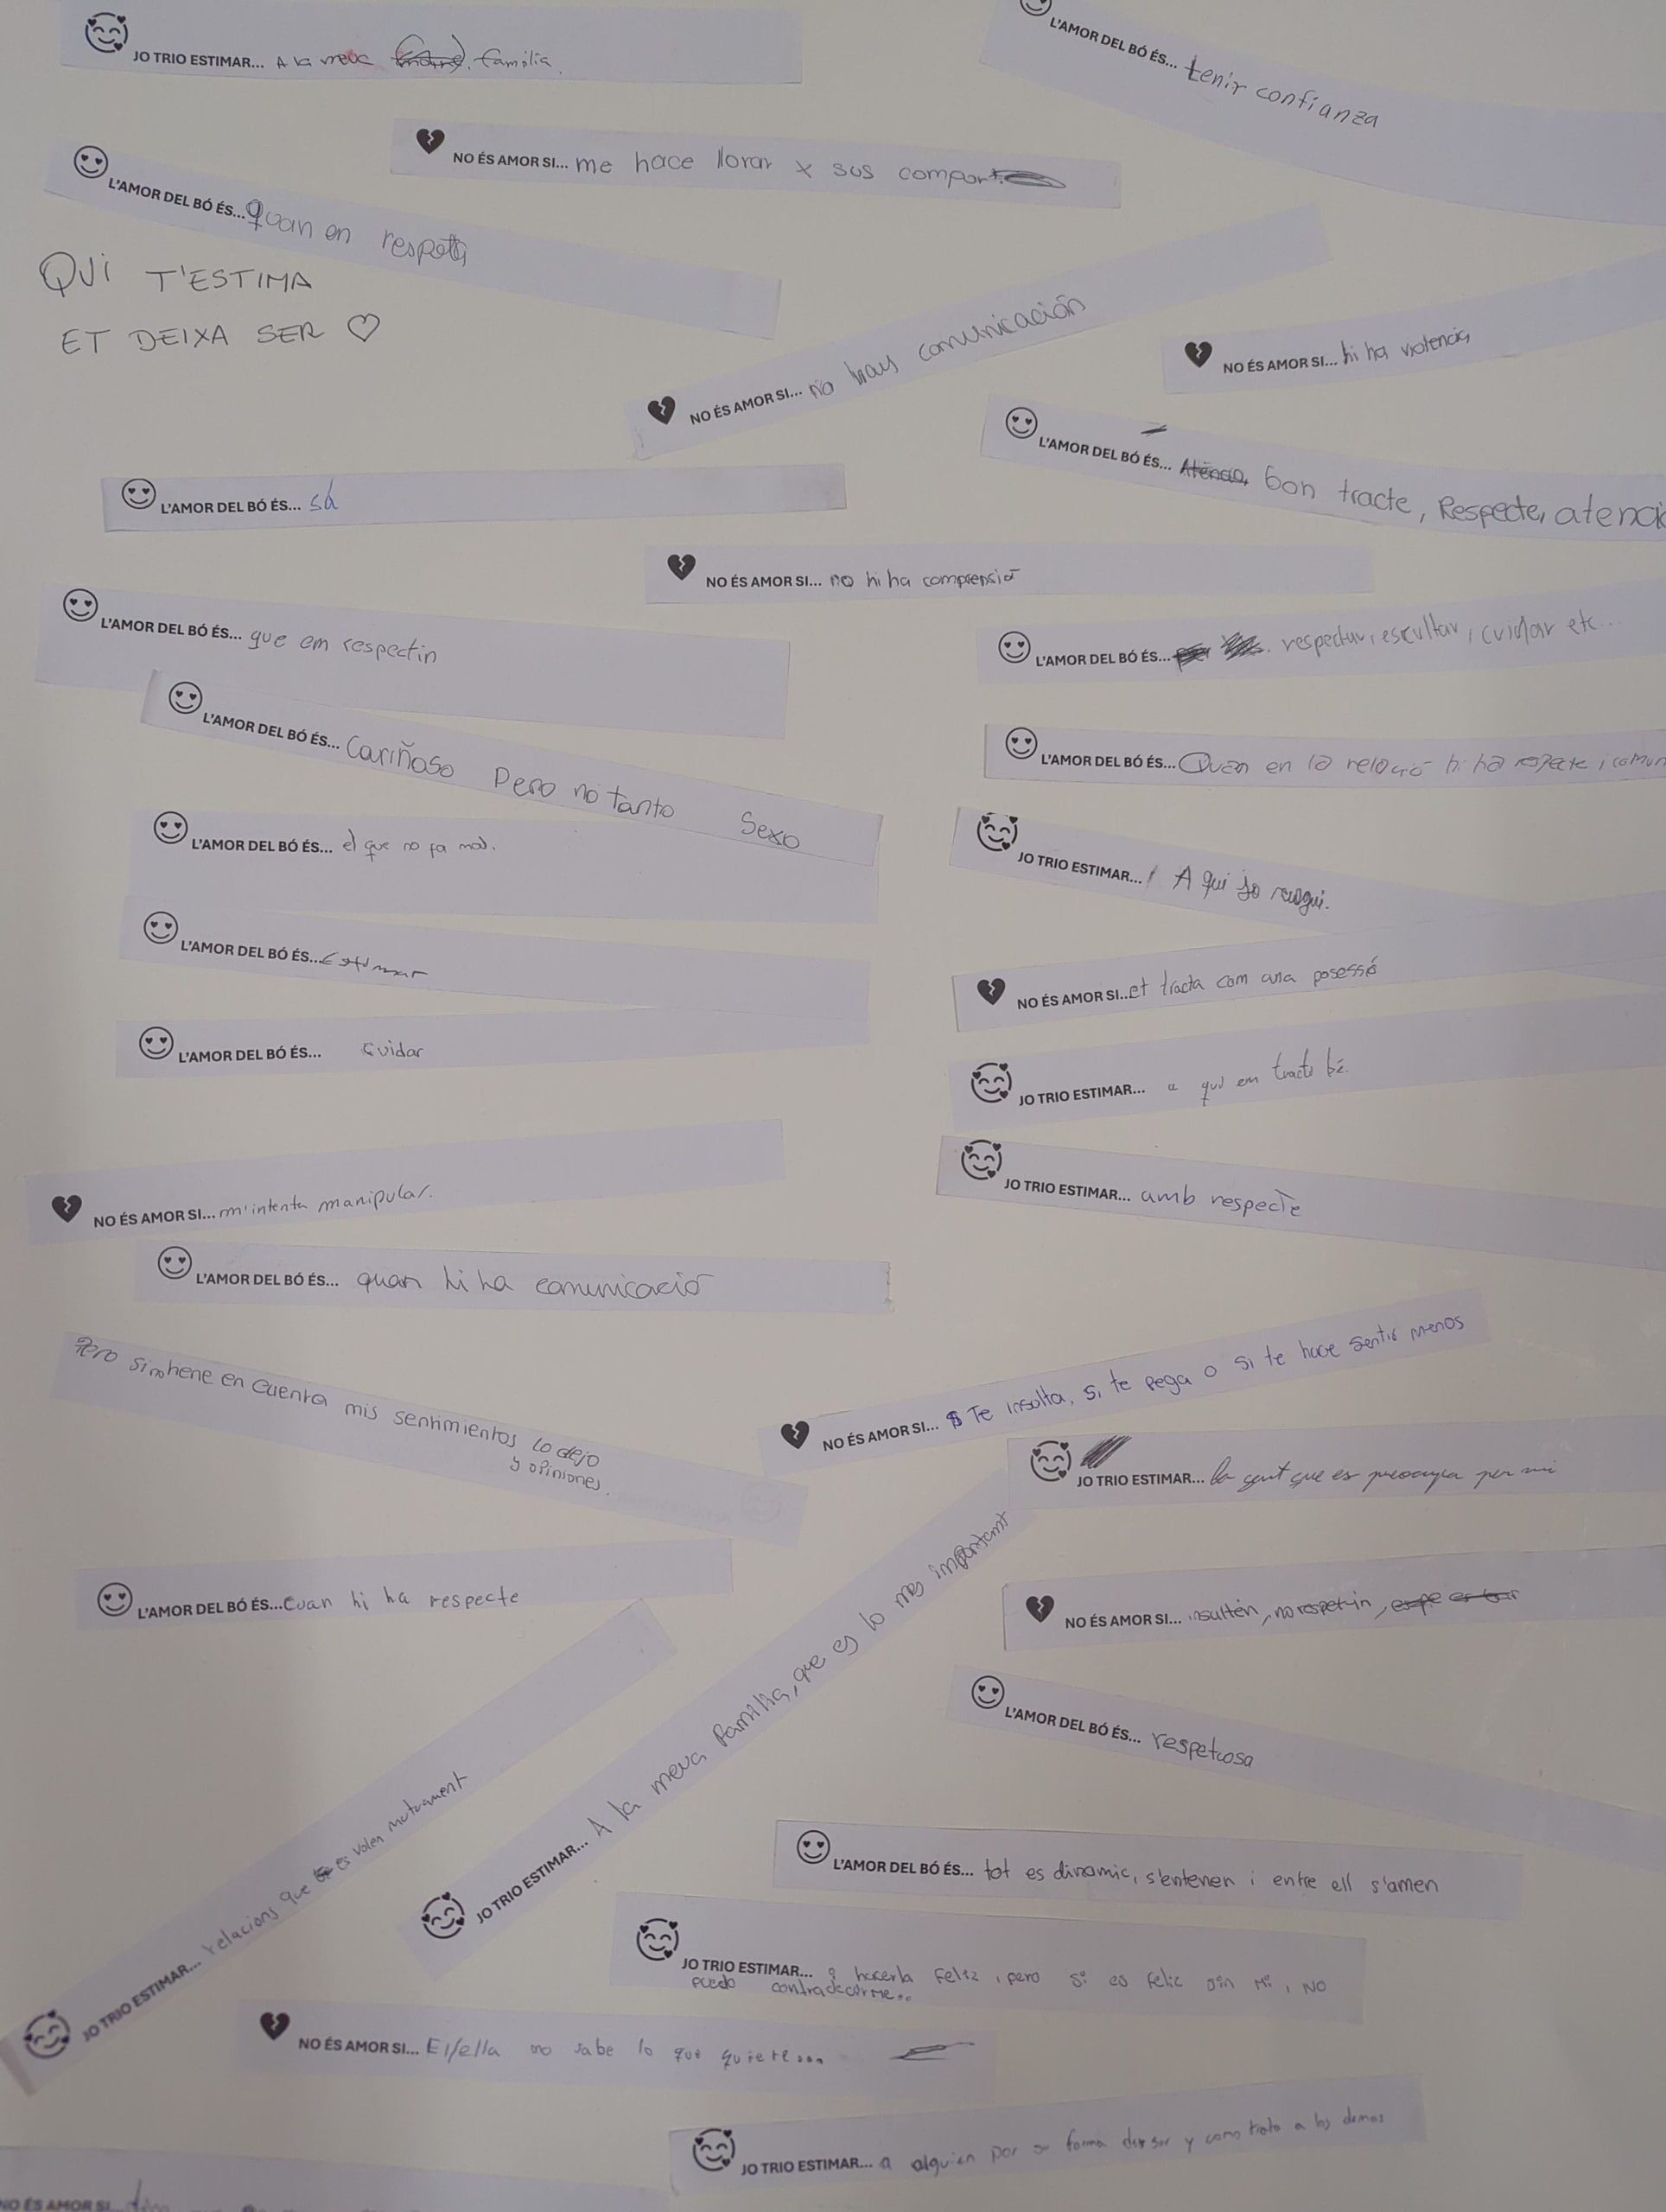 JO TRIO ESTIMAR... A la meva família.
L'AMOR DEL BÓ ÉS... tenir confianza
NO ÉS AMOR SI... me hace llorar x sus comport
L'AMOR DEL BÓ ÉS... Quan en respeta
QUI T'ESTIMA
ET DEIXA SER ♡
NO ÉS AMOR SI... no hay comunicación
NO ÉS AMOR SI... hi ha violencia
L'AMOR DEL BÓ ÉS... Atencio, bon tracte, Respecte, atenció
L'AMOR DEL BÓ ÉS... sá
NO ÉS AMOR SI... no hi ha comprensió
L'AMOR DEL BÓ ÉS... que em respectin
L'AMOR DEL BÓ ÉS... respectar, escultar, cuidar etc...
L'AMOR DEL BÓ ÉS... Cariñoso Pero no tanto Sexo
L'AMOR DEL BÓ ÉS... Quan en la relació hi ha respecte i comun
L'AMOR DEL BÓ ÉS... el que no fa mal.
JO TRIO ESTIMAR... A qui jo vulgui.
L'AMOR DEL BÓ ÉS... Estimar
NO ÉS AMOR SI... et tracta com una posessió
L'AMOR DEL BÓ ÉS... cuidar
JO TRIO ESTIMAR... a qui em tracti bé.
JO TRIO ESTIMAR... amb respecte
NO ÉS AMOR SI... m'intenta manipular.
L'AMOR DEL BÓ ÉS... quan hi ha comunicació
Pero si no tiene en cuenta mis sentimientos lo dejo
y opiniones.
NO ÉS AMOR SI... Te insulta, si te pega o si te hace sentir menos
JO TRIO ESTIMAR... la gent que es preocupa per mi
L'AMOR DEL BÓ ÉS... Cuan hi ha respecte
NO ÉS AMOR SI... insulten, no respetin,
L'AMOR DEL BÓ ÉS... respetuosa
JO TRIO ESTIMAR... A la meva familia, que es lo mes important
JO TRIO ESTIMAR... relacions que es volen mutuament
L'AMOR DEL BÓ ÉS... tot es dinamic, s'entenen i entre ell s'amen
JO TRIO ESTIMAR... y hacerla feliz, pero si es feliz sin mi, no
puedo contradecirme...
NO ÉS AMOR SI... El/ella no sabe lo que quiere...
JO TRIO ESTIMAR... a alguien por su forma de ser y como trata a los demas
NO ÉS AMOR SI...